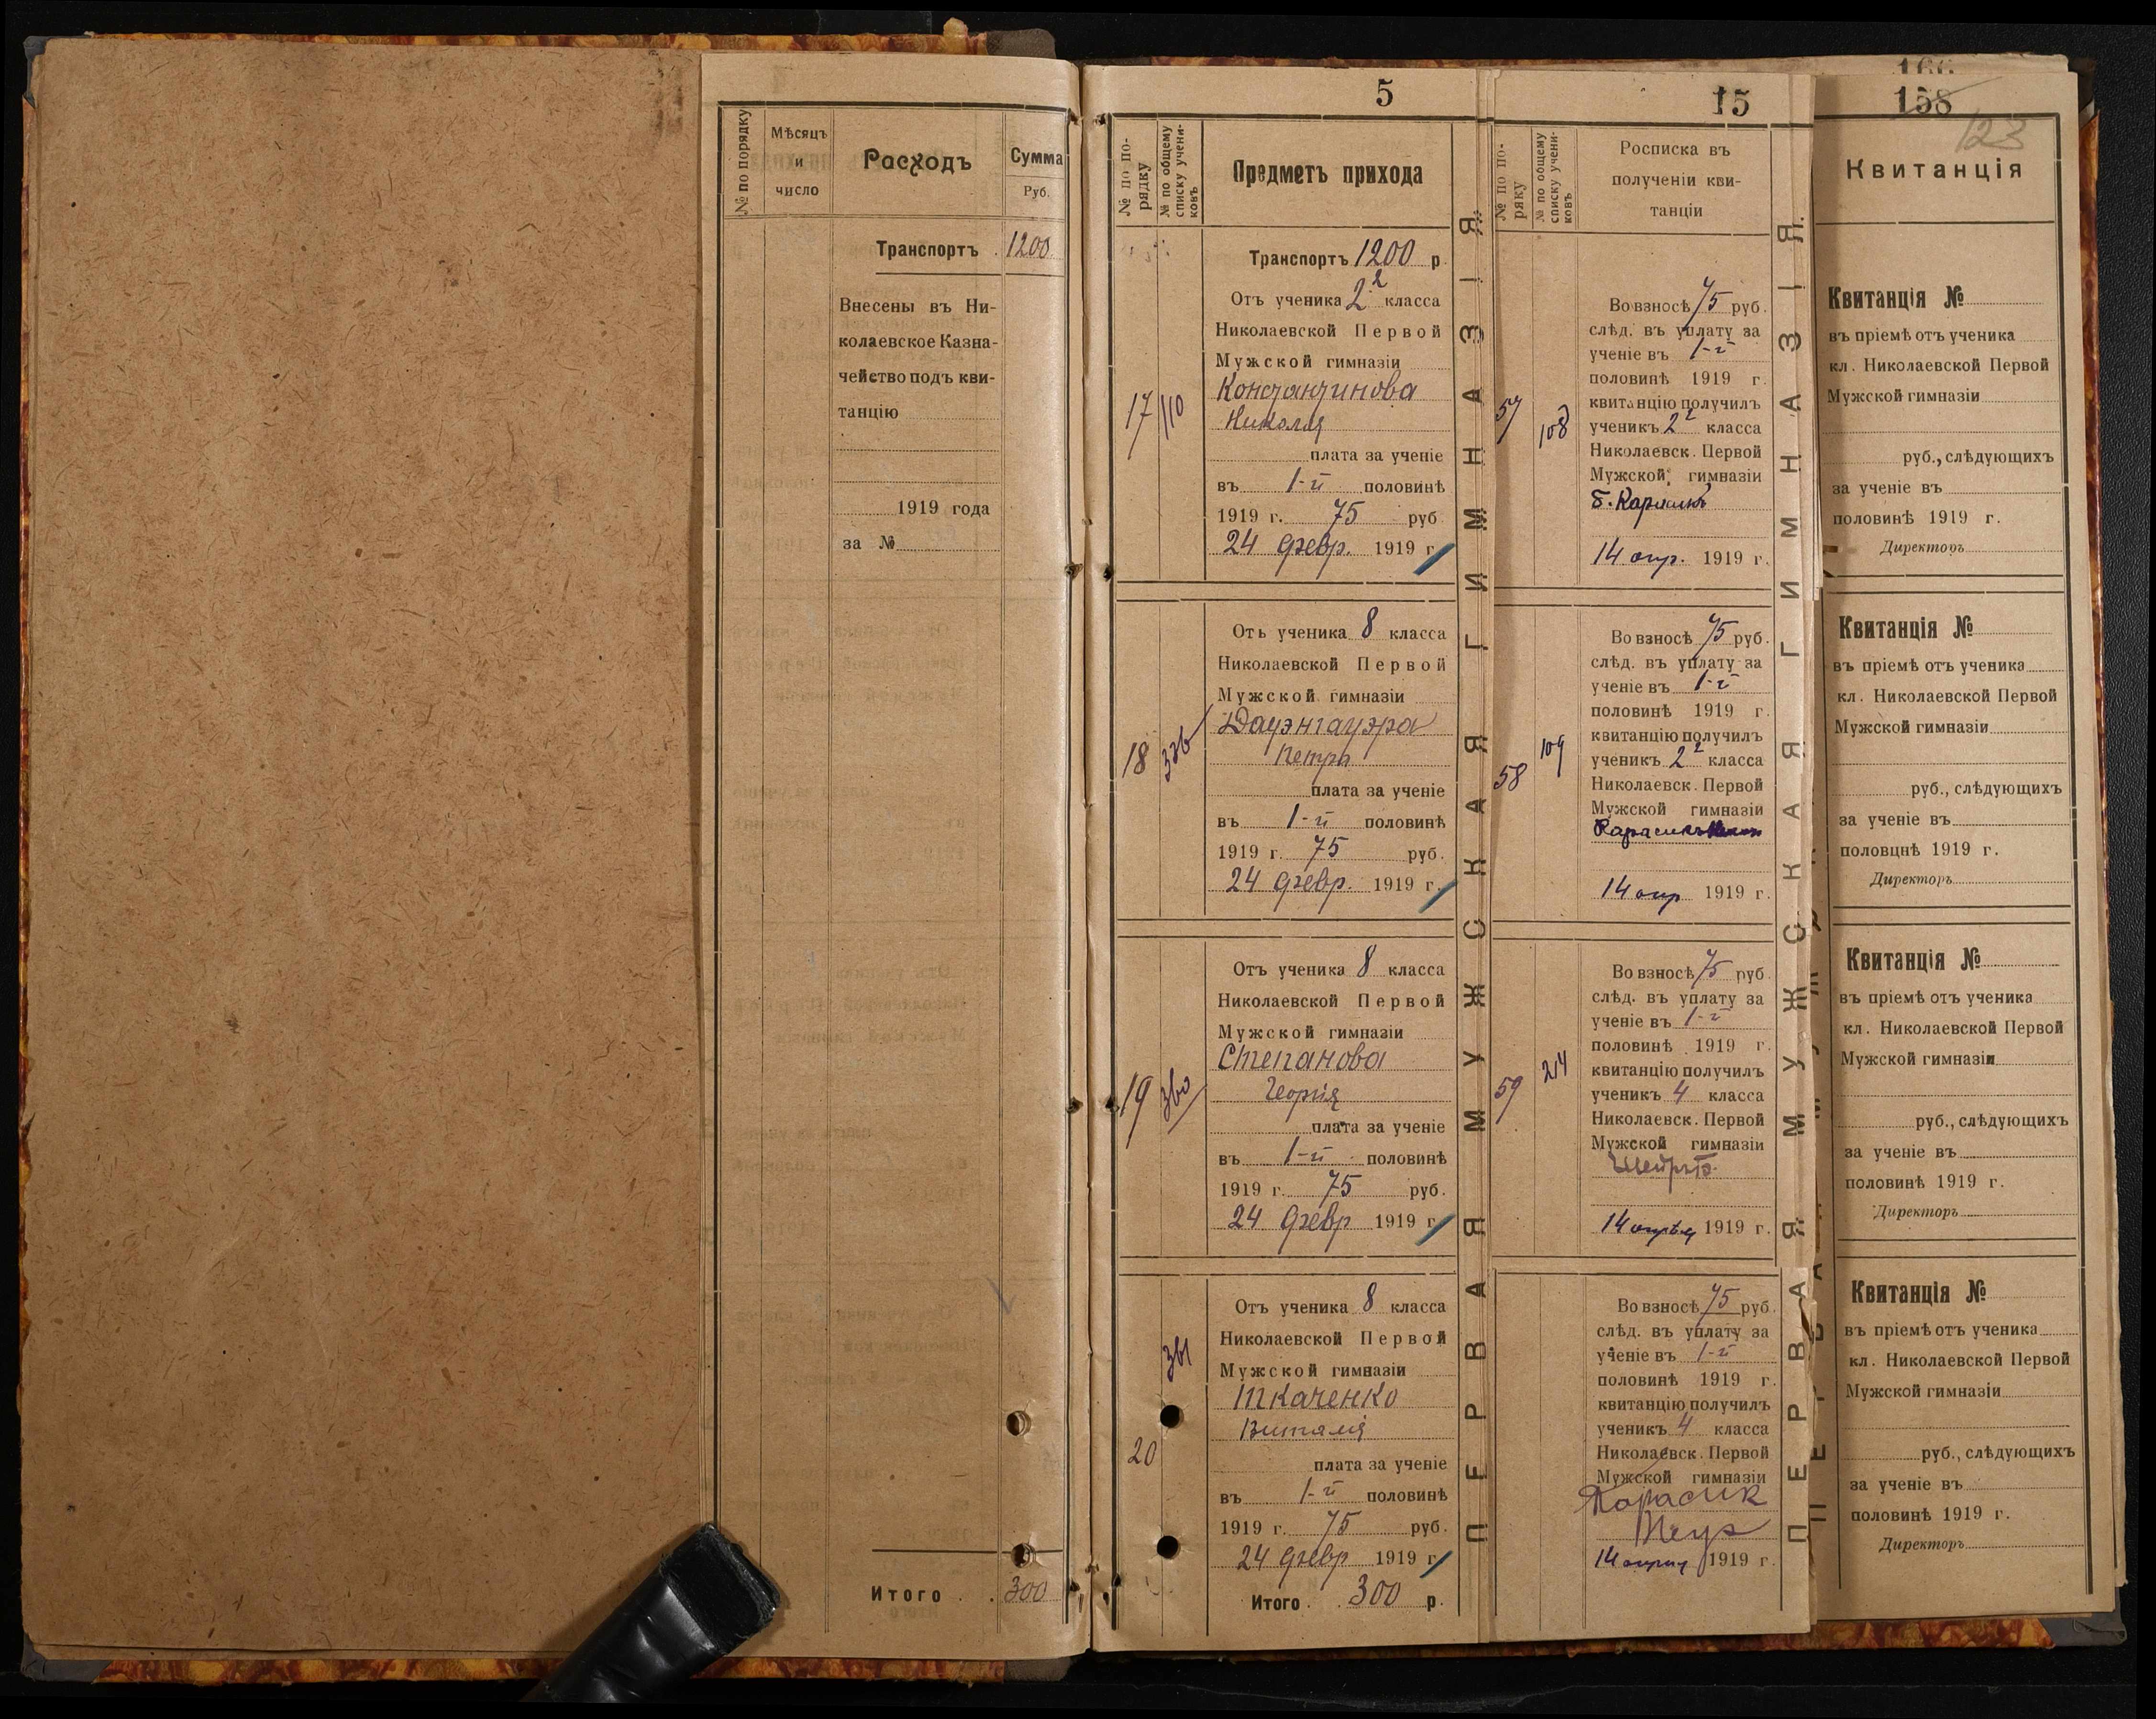 № по порядку
Мѣсяцъ
и
число
Расходъ
Сумма
Руб.
Транспортъ . 1200
Внесены въ Ни-
колаевское Казна-
чейство подъ кви-
танцію
1919 года
за №
Итого . . 300
5
№ по по-
рядку
№ по общему
списку учени-
ковъ
Предметъ прихода
Транспортъ 1200 р
17
110
Отъ ученика 2² класса
Николаевской Первой
Мужской гимназіи
Константинова
Николая
плата за ученіе
въ 1-й половинѣ
1919 г. 75 руб
24 февр. 1919 г.
18
326
Отъ ученика 8 класса
Николаевской Первой
Мужской гимназіи
Дауэнгауэра
Петра
плата за ученіе
въ 1-й половинѣ
1919 г. 75 руб.
24 февр. 1919 г.
19
360
Отъ ученика 8 класса
Николаевской Первой
Мужской гимназіи
Степанова
Георгія
плата за ученіе
въ 1-й половинѣ
1919 г. 75 руб.
24 февр 1919 г.
20
361
Отъ ученика 8 класса
Николаевской Первой
Мужской гимназіи
Ткаченко
Виталія
плата за ученіе
въ 1-й половинѣ
1919 г. 75 руб.
24 февр 1919 г.
Итого . . 300 р.
ПЕРВАЯ МУЖСКАЯ ГИМНАЗІЯ.
15
№ по по-
ряку
№ по общему
списку учени-
ковъ
Росписка въ
полученіи кви-
танціи
57
108
Во взносѣ 75 руб.
слѣд. въ уплату за
ученіе въ 1-й
половинѣ 1919 г.
квитанцію получилъ
ученикъ 2² класса
Николаевск. Первой
Мужской гимназіи
Б. Карасикъ
14 апр. 1919 г.
58
109
Во взносѣ 75 руб.
слѣд. въ уплату за
ученіе въ 1-й
половинѣ 1919 г.
квитанцію получилъ
ученикъ 2² класса
Николаевск. Первой
Мужской гимназіи
Карасикъ
14 апр 1919 г.
59
214
Во взносѣ 75 руб
слѣд. въ уплату за
ученіе въ 1-й
половинѣ 1919 г.
квитанцію получилъ
ученикъ 4 класса
Николаевск. Первой
Мужской гимназіи
14 апрѣля 1919 г.
Во взносѣ 75 руб.
слѣд. въ уплату за
ученіе въ 1-й
половинѣ 1919 г.
квитанцію получилъ
ученикъ 4 класса
Николаевск. Первой
Мужской гимназіи
Карасик
14 апрѣля 1919 г.
ПЕРВАЯ МУЖСКАЯ ГИМНАЗІЯ.
166
158
123
Квитанція
Квитанція №
въ пріемѣ отъ ученика
кл. Николаевской Первой
Мужской гимназіи
руб., слѣдующихъ
за ученіе въ
половинѣ 1919 г.
Директоръ
Квитанція №
въ пріемѣ отъ ученика
кл. Николаевской Первой
Мужской гимназіи
руб., слѣдующихъ
за ученіе въ
половцнѣ 1919 г.
Директоръ
Квитанція №
въ пріемѣ отъ ученика
кл. Николаевской Первой
Мужской гимназіи
руб., слѣдующихъ
за ученіе въ
половинѣ 1919 г.
Директоръ
Квитанція №
въ пріемѣ отъ ученика
кл. Николаевской Первой
Мужской гимназіи
руб., слѣдующихъ
за ученіе въ
половинѣ 1919 г.
Директоръ